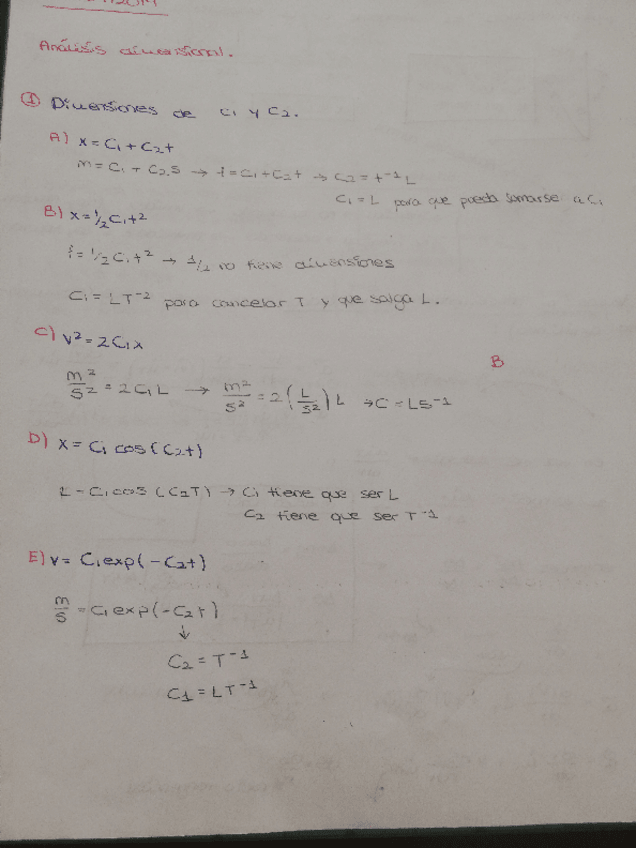 Análisis dimensional.
① Dimensiones de C₁ y C₂.
A) x = C₁ + C₂t
m = C₁ + C₂.s → L = C₁ + C₂t → C₂ = t⁻¹ L
C₁ = L para que pueda sumarse a C₁
B) x = 1/2 C₁t²
L = 1/2 C₁t² → 1/2 no tiene dimensiones
C₁ = LT⁻² para cancelar T y que salga L.
C) v² = 2C₁x
m²/s² = 2C₁L → m²/s² = 2(L/s²)L → C = LS⁻¹
B
D) x = C₁ cos(C₂t)
L = C₁cos(C₂T) → C₁ tiene que ser L
C₂ tiene que ser T⁻¹
E) v = C₁exp(-C₂t)
m/s = C₁exp(-C₂t)
↓
C₂ = T⁻¹
C₁ = LT⁻¹